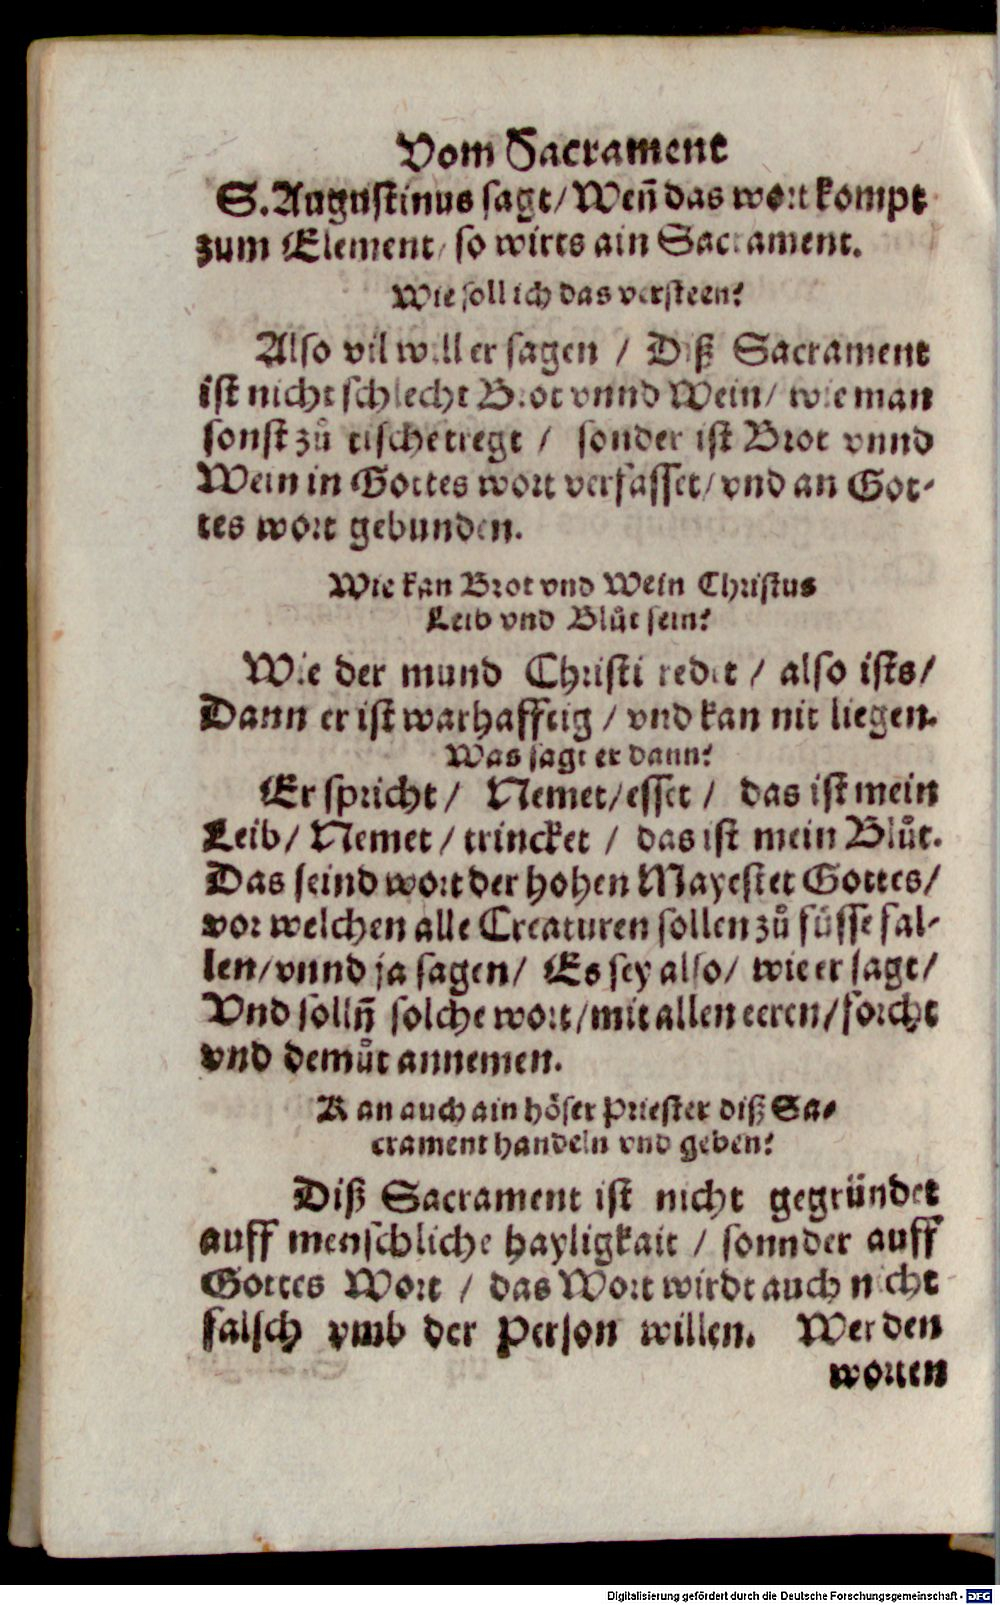 Vom Sacrament
S. Augustinus sagt/ Weñ das wort kompt
zum Element/ so wirts ain Sacrament.
Wie soll ich das versteen?
Also vil will er sagen / Diß Sacrament
ist nicht schlecht Brot vnnd Wein/ wie man
sonst zů tische tregt / sonder ist Brot vnnd
Wein in Gottes wort verfasset/ vnd an Got-
tes wort gebunden.
Wie kan Brot vnd Wein Christus
Leib vnd Blůt sein?
Wie der mund Christi redet / also ists/
Dann er ist warhafftig / vnd kan nit liegen.
Was sagt er dann?
Er spricht / Nemet/ esset / das ist mein
Leib/ Nemet / trincket / das ist mein Blůt.
Das seind wort der hohen Mayestet Gottes/
vor welchen alle Creaturen sollen zů füsse fal-
len/ vnnd ja sagen/ Es sey also/ wie er sagt/
Vnd solln̄ solche wort/ mit allen eeren/ forcht
vnd demůt annemen.
Kan auch ain böser Priester diß Sa-
crament handeln vnd geben?
Diß Sacrament ist nicht gegründet
auff menschliche hayligkait / sonnder auff
Gottes Wort / das Wort wirdt auch nicht
falsch vmb der Person willen. Wer den
worten
Digitalisierung gefördert durch die Deutsche Forschungsgemeinschaft - DFG